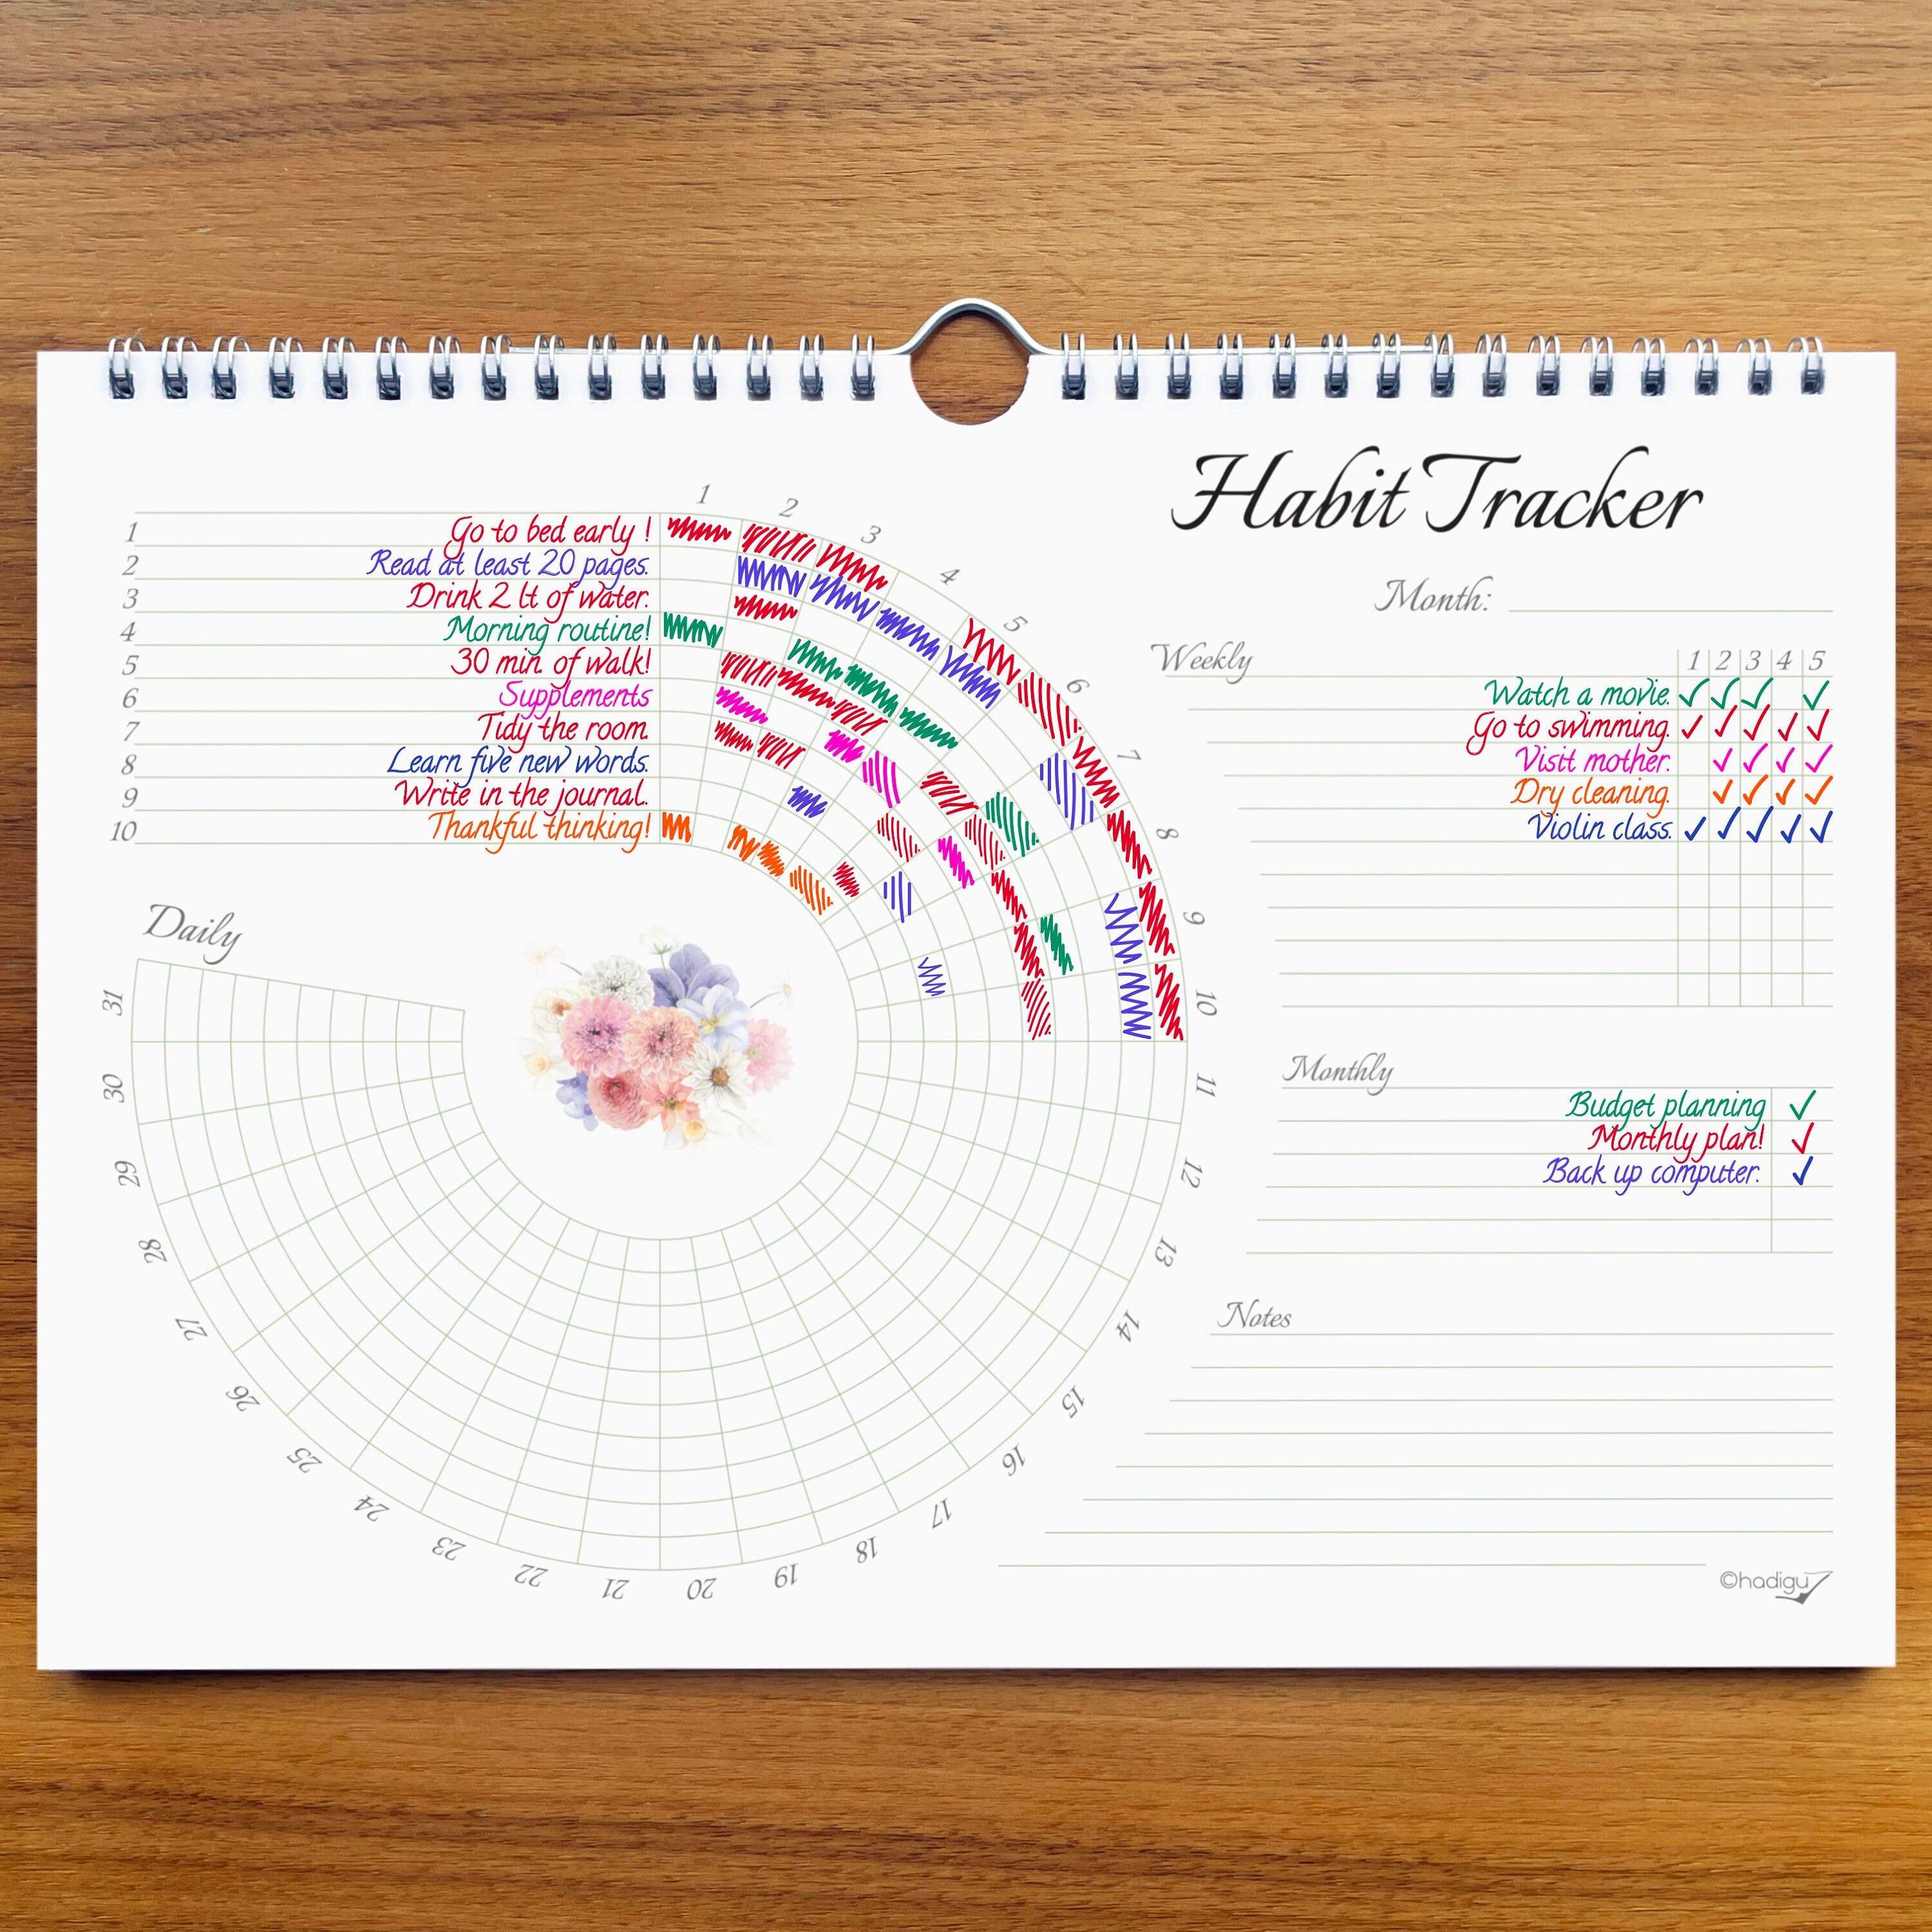 Habit Tracker
Month:
1 2 3 4 5 6 7 8 9 10 11 12 13 14 15 16 17 18 19 20 21 22 23 24 25 26 27 28 29 30 31
1 Go to bed early !
2 Read at least 20 pages.
3 Drink 2 lt of water.
4 Morning routine!
5 30 min. of walk!
6 Supplements
7 Tidy the room.
8 Learn five new words.
9 Write in the journal.
10 Thankful thinking!
Daily
Weekly 1 2 3 4 5
Watch a movie.
Go to swimming.
Visit mother.
Dry cleaning.
Violin class.
Monthly
Budget planning
Monthly plan!
Back up computer.
Notes
©hadigu